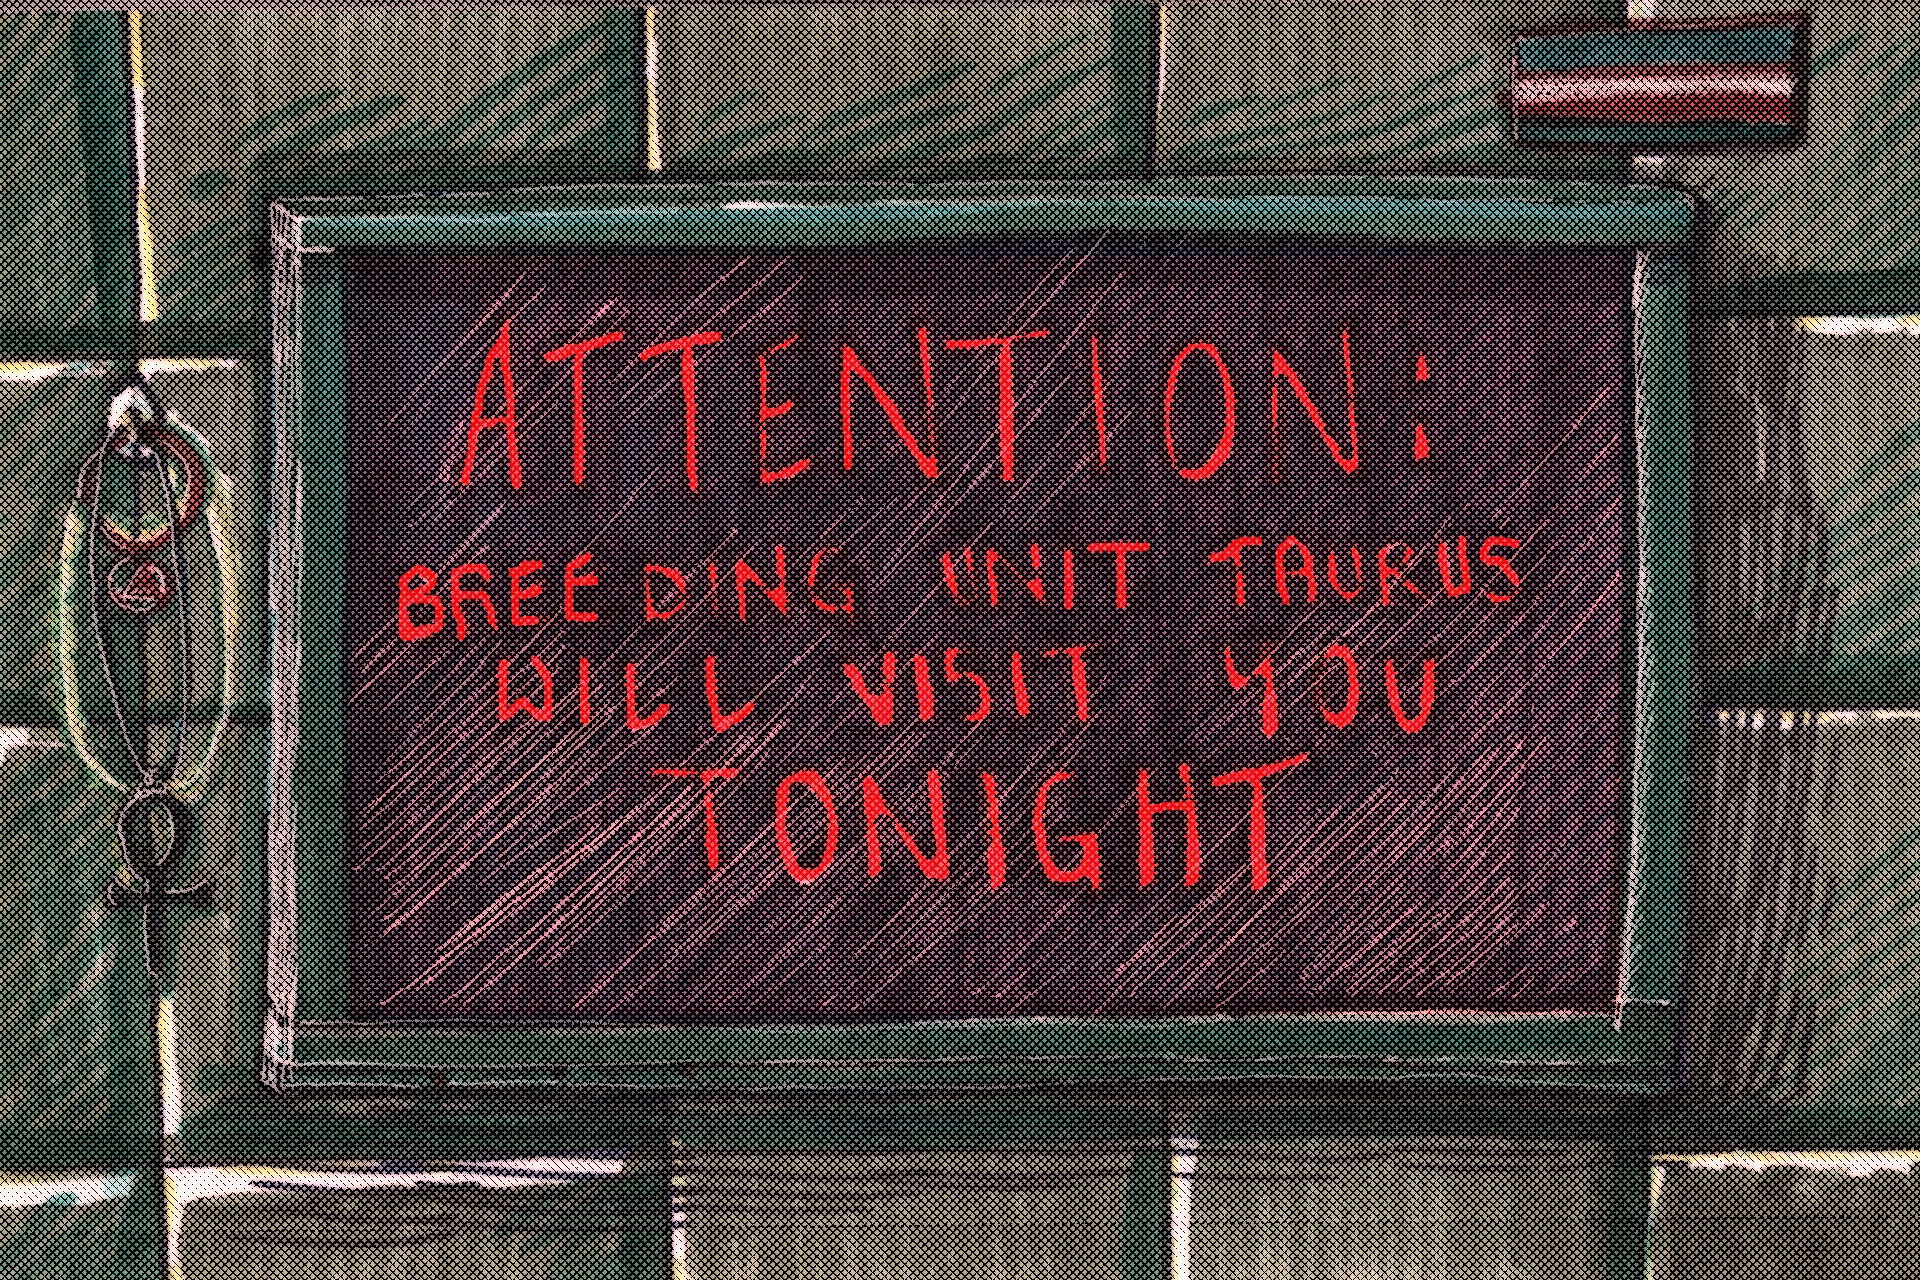 ATTENTION:
BREEDING UNIT TAURUS
WILL VISIT YOU
TONIGHT